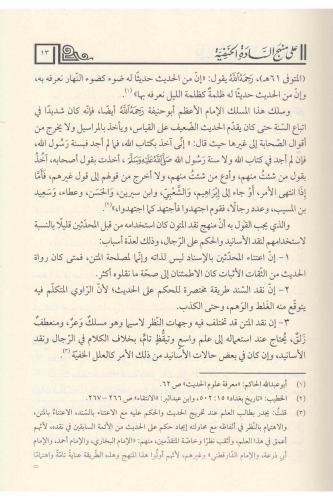 على منهج السادة الحنفية
١٣
(المتوفى ٦١هـ)، رَحِمَهُ اللَّهُ يقول: «إنّ من الحديث حديثًا له ضوء كضوء النهار نعرفه به،
وإن من الحديث حديثًا له ظلمةٌ كظلمة الليل نعرفه بها»(١).
وسلك هذا المسلك الإمام الأعظم أبو حنيفة رَحِمَهُ اللَّهُ أيضًا، فإنه كان شديدًا في
اتباع السنّة حتى كان يقدّم الحديث الضعيف على القياس، ويأخذ بالمراسيل ولا يخرج من
أقوال الصحابة إلى غيرها حيث قال: «إنّي آخذ بكتاب الله، فما لم أجد فبسنة رسول الله،
فإن لم أجد في كتاب الله ولا سنة رسول الله صَلَّى اللَّهُ عَلَيْهِ وَسَلَّمَ، أخذت بقول أصحابه، آخُذُ
بقول من شئتُ منهم، وأدع من شئتُ منهم، ولا أخرج من قولهم إلى قول غيرهم، فأمَّا
إذا انتهى الأمر، أو جاء إلى إبراهيم، والشَّعْبيّ، وابن سيرين، والحَسَن، وعطاء، وسَعِيد
بن المسيب، وعدد رجالًا، فقوم اجتهدوا فأجتهد كما اجتهدوا»(٢).
والذي يجب القول به أنَّ منهج نقد المتون كان استخدامه من قبل المحدّثين قليلًا بالنسبة
لاستخدامهم لنقد الأسانيد والحكم على الرّجال، وذلك لعدّة أسباب:
١- إن اعتناء المحدّثين بالإسناد ليس لذاته وإنّما لمصلحة المتن، فمتى كان رواة
الحديث من الثّقات الأثبات كان الاطمئنان إلى صحّة ما نقلوه أكثر.
٢- إنّ نقد السند طريقة مختصرة للحكم على الحديث؛ لأنّ الرّاوي المتكلّم فيه
يتوقّع منه الغلط والوَهم، وحتى الكذب.
٣- إن نقد المتن قد تختلف فيه وجهات النّظر لاسيما وهو مسلك وَعرٌ، ومنعطف
زَلِقٌ، يُحتاج عند استعماله إلى علم واسع وتيقّظ تامّ، بخلاف الكلام في الرجال ونقد
الأسانيد، وإن كان في بعض حالات الأسانيد من ذلك الأمر كالعلل الخفيّة(٣).
(١) أبو عبد الله الحاكم: «معرفة علوم الحديث» ص ٦٢.
(٢) الخطيب: «تاريخ بغداد» ١٥: ٥٠٢، وابن عبد البر: «الانتقاء» ص ٢٦٦-٢٦٧.
(٣) قلتُ: يجدر بطالب العلم عند تخريج الحديث والحكم عليه مع الاعتناء بالسّند، الاعتناء بالمتن،
والاهتمام بالنّظر في ألفاظه مع محاولته إيجاد حكم على الحديث من الأئمة السابقين في نقده، لأنّهم
أعمق في هذا العلم، وأثقب نظرًا وخاصّة المتقدّمين، منهم: «الإمام البخاري، والإمام أحمد، والإمام
أبي زرعة، والإمام الدّارقطني» وغيرهم، لأنّهم أولَوا هذا المنهج وهذه الطّريقة عناية تامّة واهتمامًا